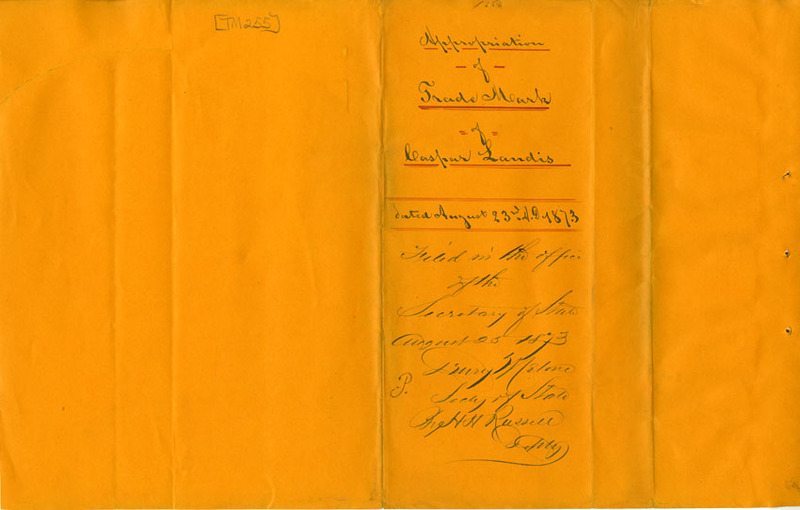 [TM255]
Appropriation
of
Trade Mark
of
Caspar Landis
dated August 23rd A.D. 1873
Filed in the office
of the
Secretary of State
August 25 1873
Drury Melone
Secty of State
P.
By H H Russell
Depty